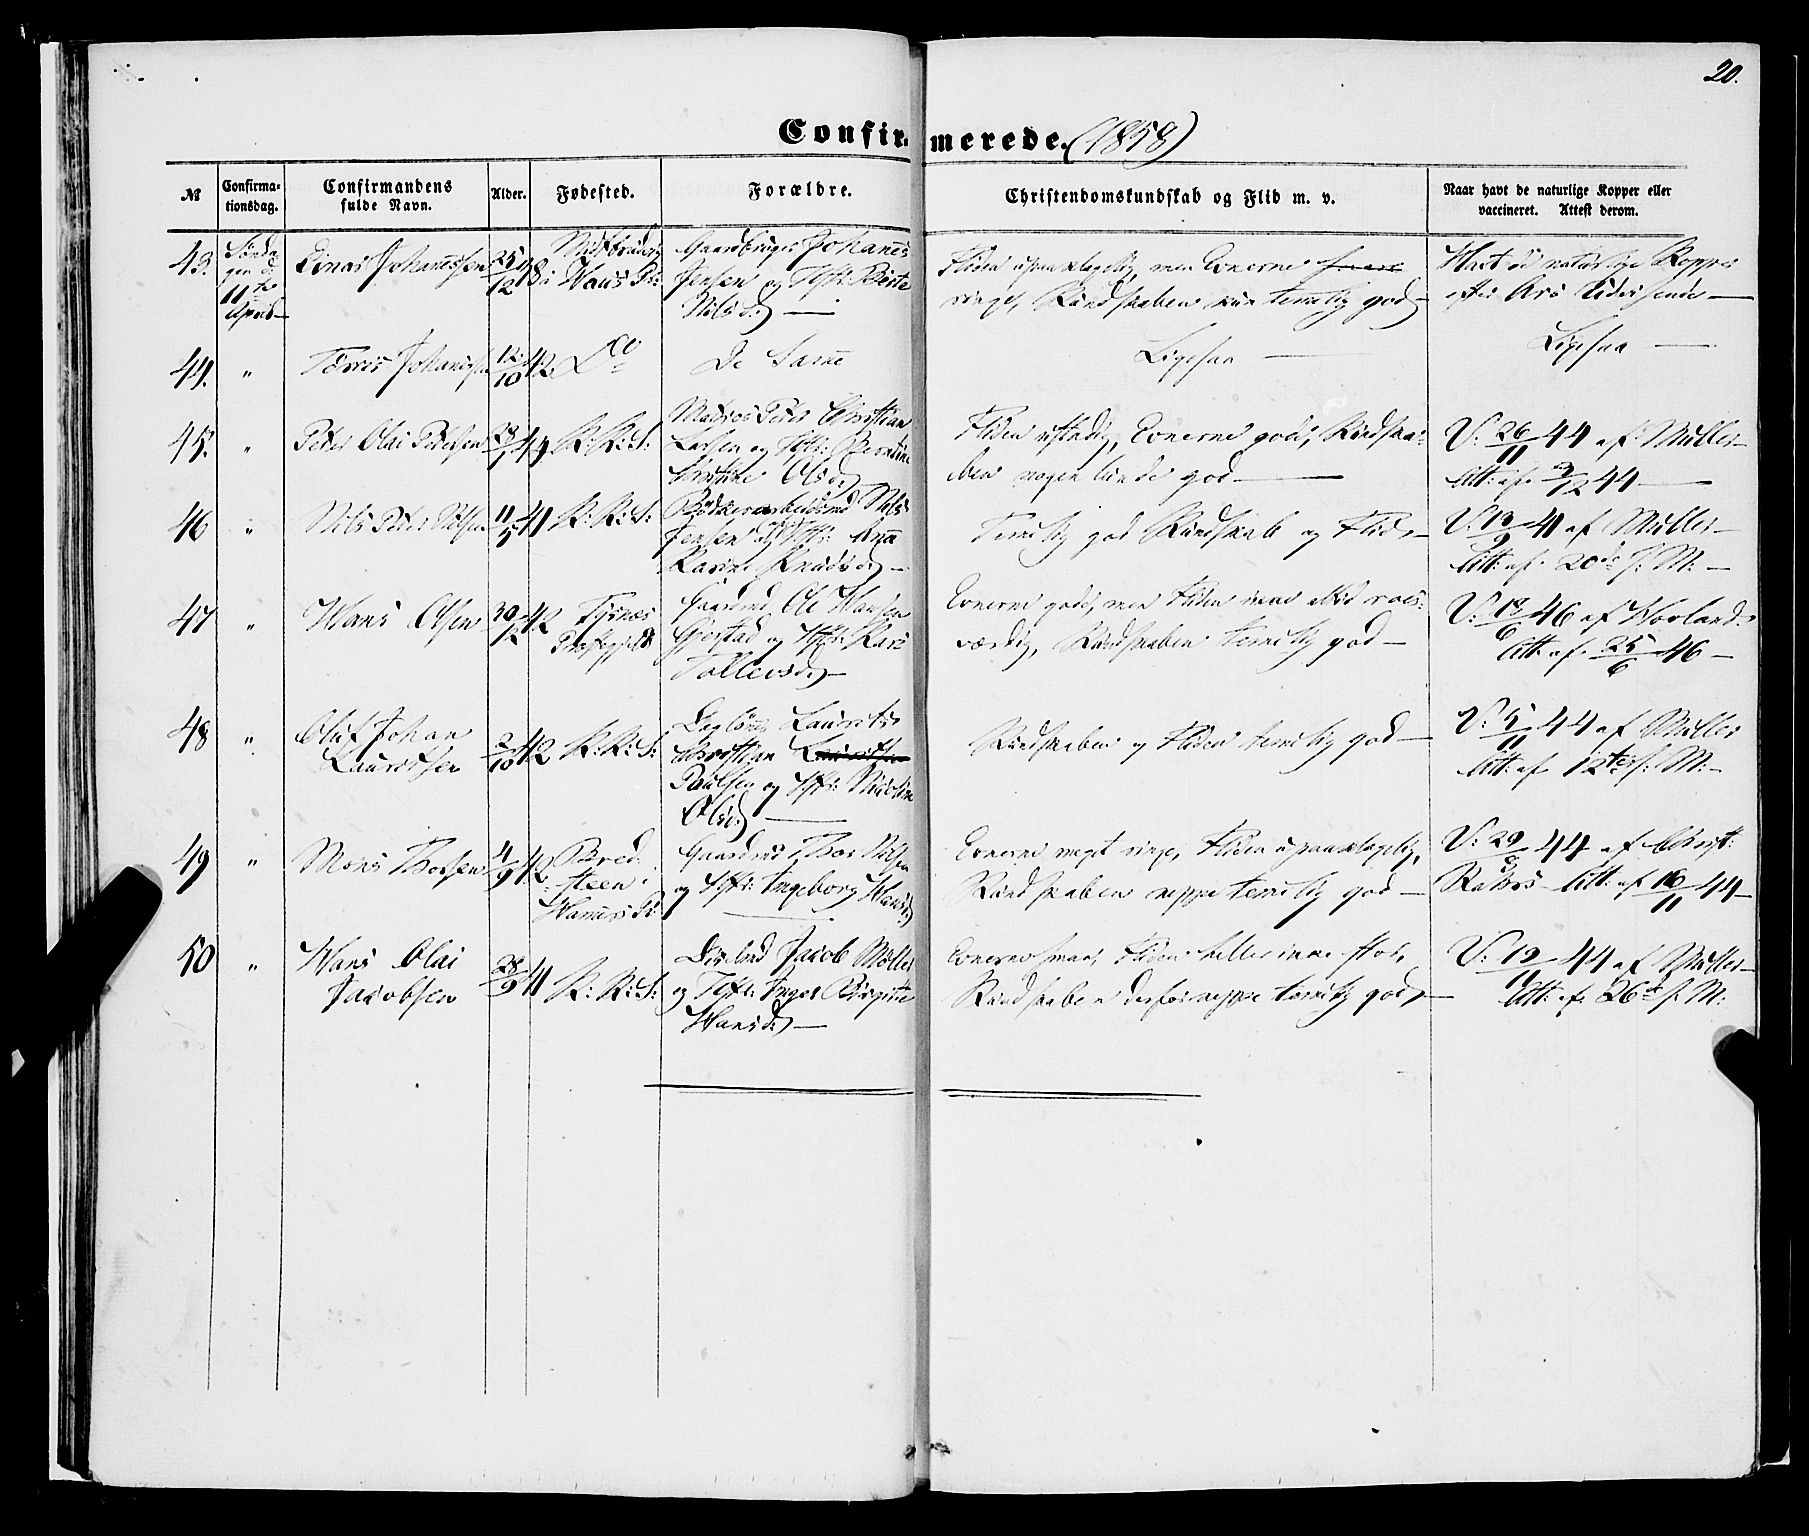 20.
Confirmerede. (1858)
№ Confirmationsdag. Confirmandens fulde Navn. Alder. Fødested. Forældre. Christendomskundskab og Flid m. v. Naar havt de naturlige Kopper eller vaccineret. Attest derom.
43. Sønda-
gen d:
11te
April
Johannessen 25/12
Gaardbruger Johannes
Jensen og Hst: Berte
Nilsd:
Fliden upaaklagelig, men Evnerne
ringe, Kundskaben kun temelig god
Havt de naturlige Kopper
44. " Johannessen 12/10 42 Do De Samme Ligesaa Ligesaa
45. " Peter Olai Petersen K: K: S:
Matros Peter Christian
Larsen og Hst: Berntine
Olsd:
Fliden ustadig, Evnerne gode, Kundska-
ben nogenlunde god
V: 26/11 44 af Müller
Att: af 44
46 " Nils Peter Nilsen 11/5 41 K: K: S:
Bødkerarbeidsmd Nils
Jensen og Hst: Ana
Karine Knudsd:
Temelig god Kundskab og Flid
V: 41 af Müller
Att: af 20de s: M:
47 " Hans Olsen 30/12 42 Tysnæs
Præstegjeld
Gaardmd Ole Hansen
Gjerstad og Hst: Kari
Tollevsd:
Evnerne gode, men Fliden ikke altid roes-
værdig, Kundskaben temelig god
V: 18/6 46 af Hovland
Att: af 25/6 46
48 " Oluf Johan
Lauritsen 2/10 42 K: K: S:
Lauritz
Christian
Paulsen og Hst:
Olsd:
Kundskaben og Fliden temelig god
V: 5/11 44 af Müller
Att: af 12te s: M:
49 " Mons Thorsen 4/9 42 Bred-
steen i
Hammers Pr:
Gaardmd Thor Nilsen
og Hst: Ingeborg Hansd:
Evnerne meget ringe, Fliden upaaklagelig,
Kundskaben neppe temelig god
V: 29/8 44 af Christ:
Att: af 16/11 44
50 " Hans Olai
Jacobsen 28/9 41 K: K: S:
Jacob Möller
og Hst: Inger Birgitte
Hansd:
Evnerne smaa, Fliden heller ikke stor,
Kundskaben derfor neppe temelig god
V: 19/11 44 af Müller
Att: af 26de s: M: